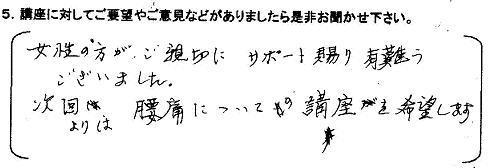 5. 講座に対してご要望やご意見などがありましたら是非お聞かせ下さい。
女性の方が、ご親切に サポート賜り 有難う
ございました。
次回
よりは 腰痛についての 講座を希望します